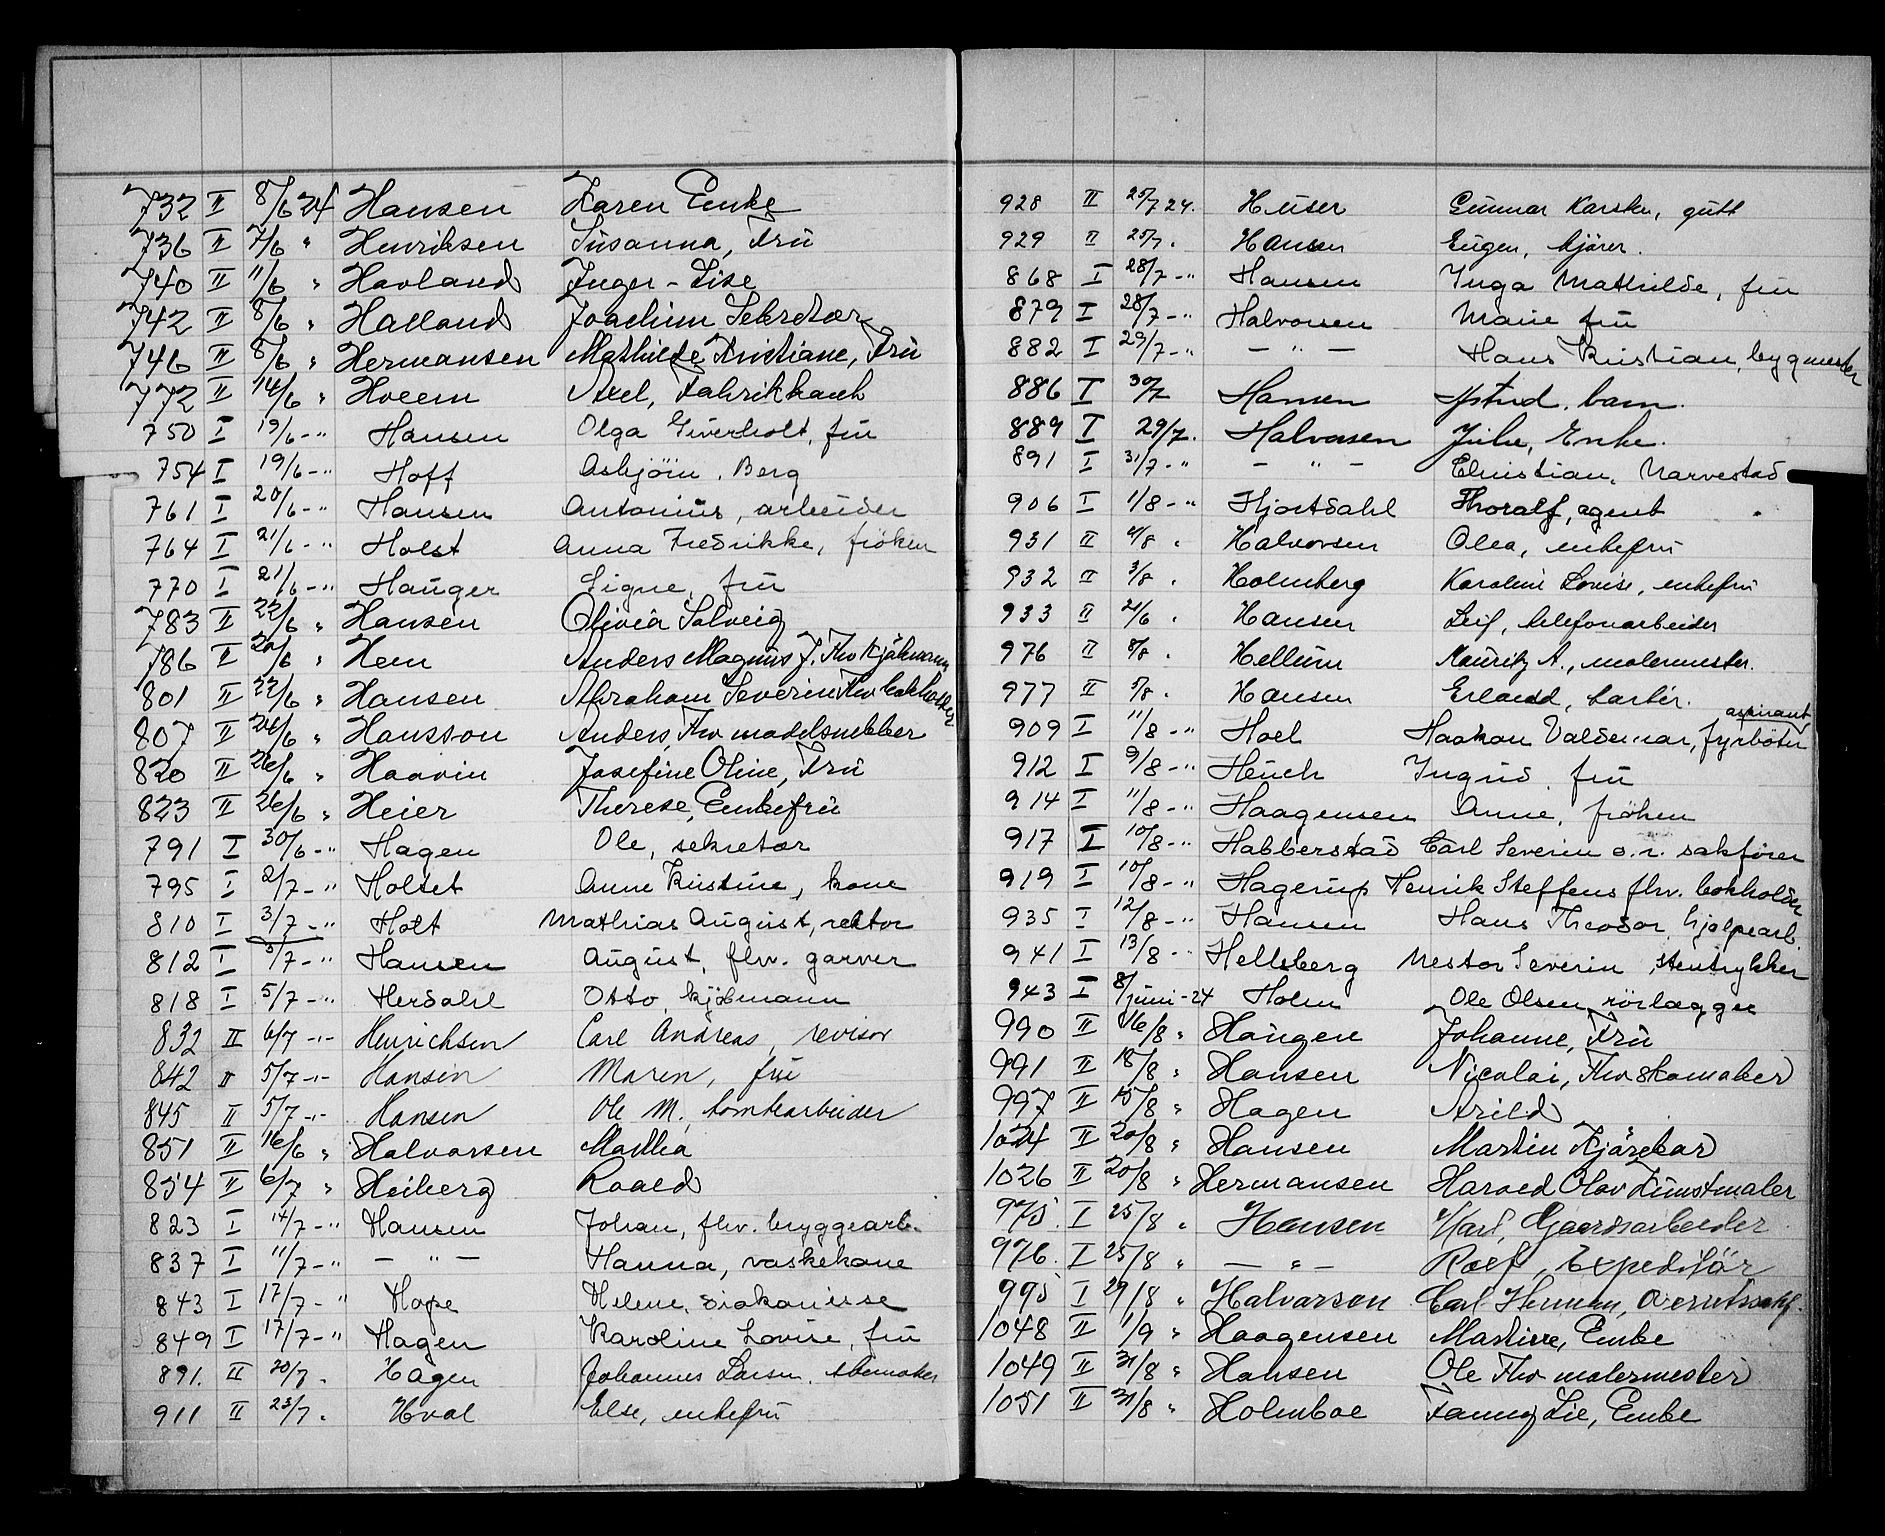 732 II 8/6 24 Hansen Karen Enke
736 II 7/6 " Henriksen Susanna, Fru
740 II 11/6 " Havland Inger-Lise
742 II 8/6 " Halland Joachim Sekretær
746 II 8/6 " Hermansen Mathilde Kristiane, Fru
772 II 14/6 " Hveem Axel, Fabrikkarb
750 I 19/6 -" Hansen Olga Giverholt, fru
754 I 19/6 -" Hoff Asbjörn. Berg
761 I 20/6 -" Hansen Antonius, arbeider
764 I 21/6 -" Holst Anna Fredrikke, fröken
770 I 21/6 -" Hauger Signe, fru
783 II 22/6 " Hansen Olivia Solveig
786 II 20/6 " Hem Anders Magnus J. Fhv Kjøbmann
801 II 22/6 " Hansen Abraham Severin Fhv bokholder
807 II 24/6 " Hansson Anders, Fhv modelsnekker
820 II 26/6 " Haavin Josefine Oline, Fru
823 II 26/6 " Heier Therese, Enkefru
791 I 30/6 -" Hagen Ole, sekretær
795 I 2/7 -" Holset Anne Kristine, kone
810 I 3/7 -" Holt Mathias August, rektor
812 I 3/7 -" Hansen August, fhv. garver
818 I 5/7 -" Herdahl Otto, kjöbmann
832 II 6/7 -"- Henrichsen Carl Andreas, revisor
842 II 5/7 -"- Hansen Maren, fru
845 II 5/7 -"- Hansen Ole M. tomtearbeider
851 II 16/6 " Halvorsen Martha
854 II 6/7 " Heiberg Roald
823 I 14/7 -" Hansen Johan, fhv. bryggearb.
837 I 11/7 -" - " - Hanna, vaskekone
843 I 17/7 -" Hope Helene, diakonisse
849 I 17/7 -" Hagen Karoline Lovise, fru
891. II 20/7. Hagen Johannes Larsen, skomaker
911 II 23/7. Hval Else, enkefru
928 II 25/7 24. Huser Gunnar Karsten, gutt
929 II 25/7. Hansen Eugen, kjører.
868 I 28/7 -" Hansen Inga Mathilde, fru
879 I 28/7 -" Halvorsen Marie fru
882 I 29/7 -" - " - Hans Kristian, bygmester
886 I 30/7 Hansen Astrid. barn.
889 I 29/7. Halvorsen Julie, Enke.
891 I 31/7 -" - " - Christian, Narvestad
906 I 1/8 -" Hjortdahl Thoralf, agent
931 II 4/8 . Halvorsen Olea, enkefru
932 II 3/8 . Holmberg Karoline Lovise, enkefru
933 II 21/6 . Hansen Leif, telefonarbeider
976 II 8/8 . Hellum Mauritz A., malermester.
977 II 5/8 . Hansen Erland, barber.
909 I 11/8 -" Hoel Haakon Valdemar, fyrböter aspirant
912 I 9/8 -" Heuch Ingrid fru
914 I 11/8 -" Haagensen Anne, fröken
917 I 10/8 -" Habberstad Carl Severin o.r. sakfører
919 I 10/8 -" Hagerup Henrik Steffens fhv. bokholder
935 I 12/8 -" Hansen Hans Theodor, hjelpearb.
941 I 13/8 -" Hellsberg Nestor Severin, stentrykker
943 I 8/juni-24 Holm Ole Olsen, rörlægger
990 II 16/8 " Haugen Johanne, Fru
991 II 18/8 " Hansen Nicolai, Fhv skomaker
997 II 15/8 " Hagen Arild
1024 II 20/8 " Hansen Martin Kjørekar
1026 II 20/8 " Hermansen Harald Olav Kunstmaler
975. I 25/8 " Hansen Karl, Gaardsarbeider
976. I 25/8 " - " - Rolf, Expeditör
995 I 29/8 " Halvorsen Carl Herman, Overrettssakf.
1048 II 1/9 " Haagensen Martine, Enke
1049 II 31/8 " Hansen Ole Fhv malermester
1051 II 31/8 " Holmboe Fanny Lie, Enke